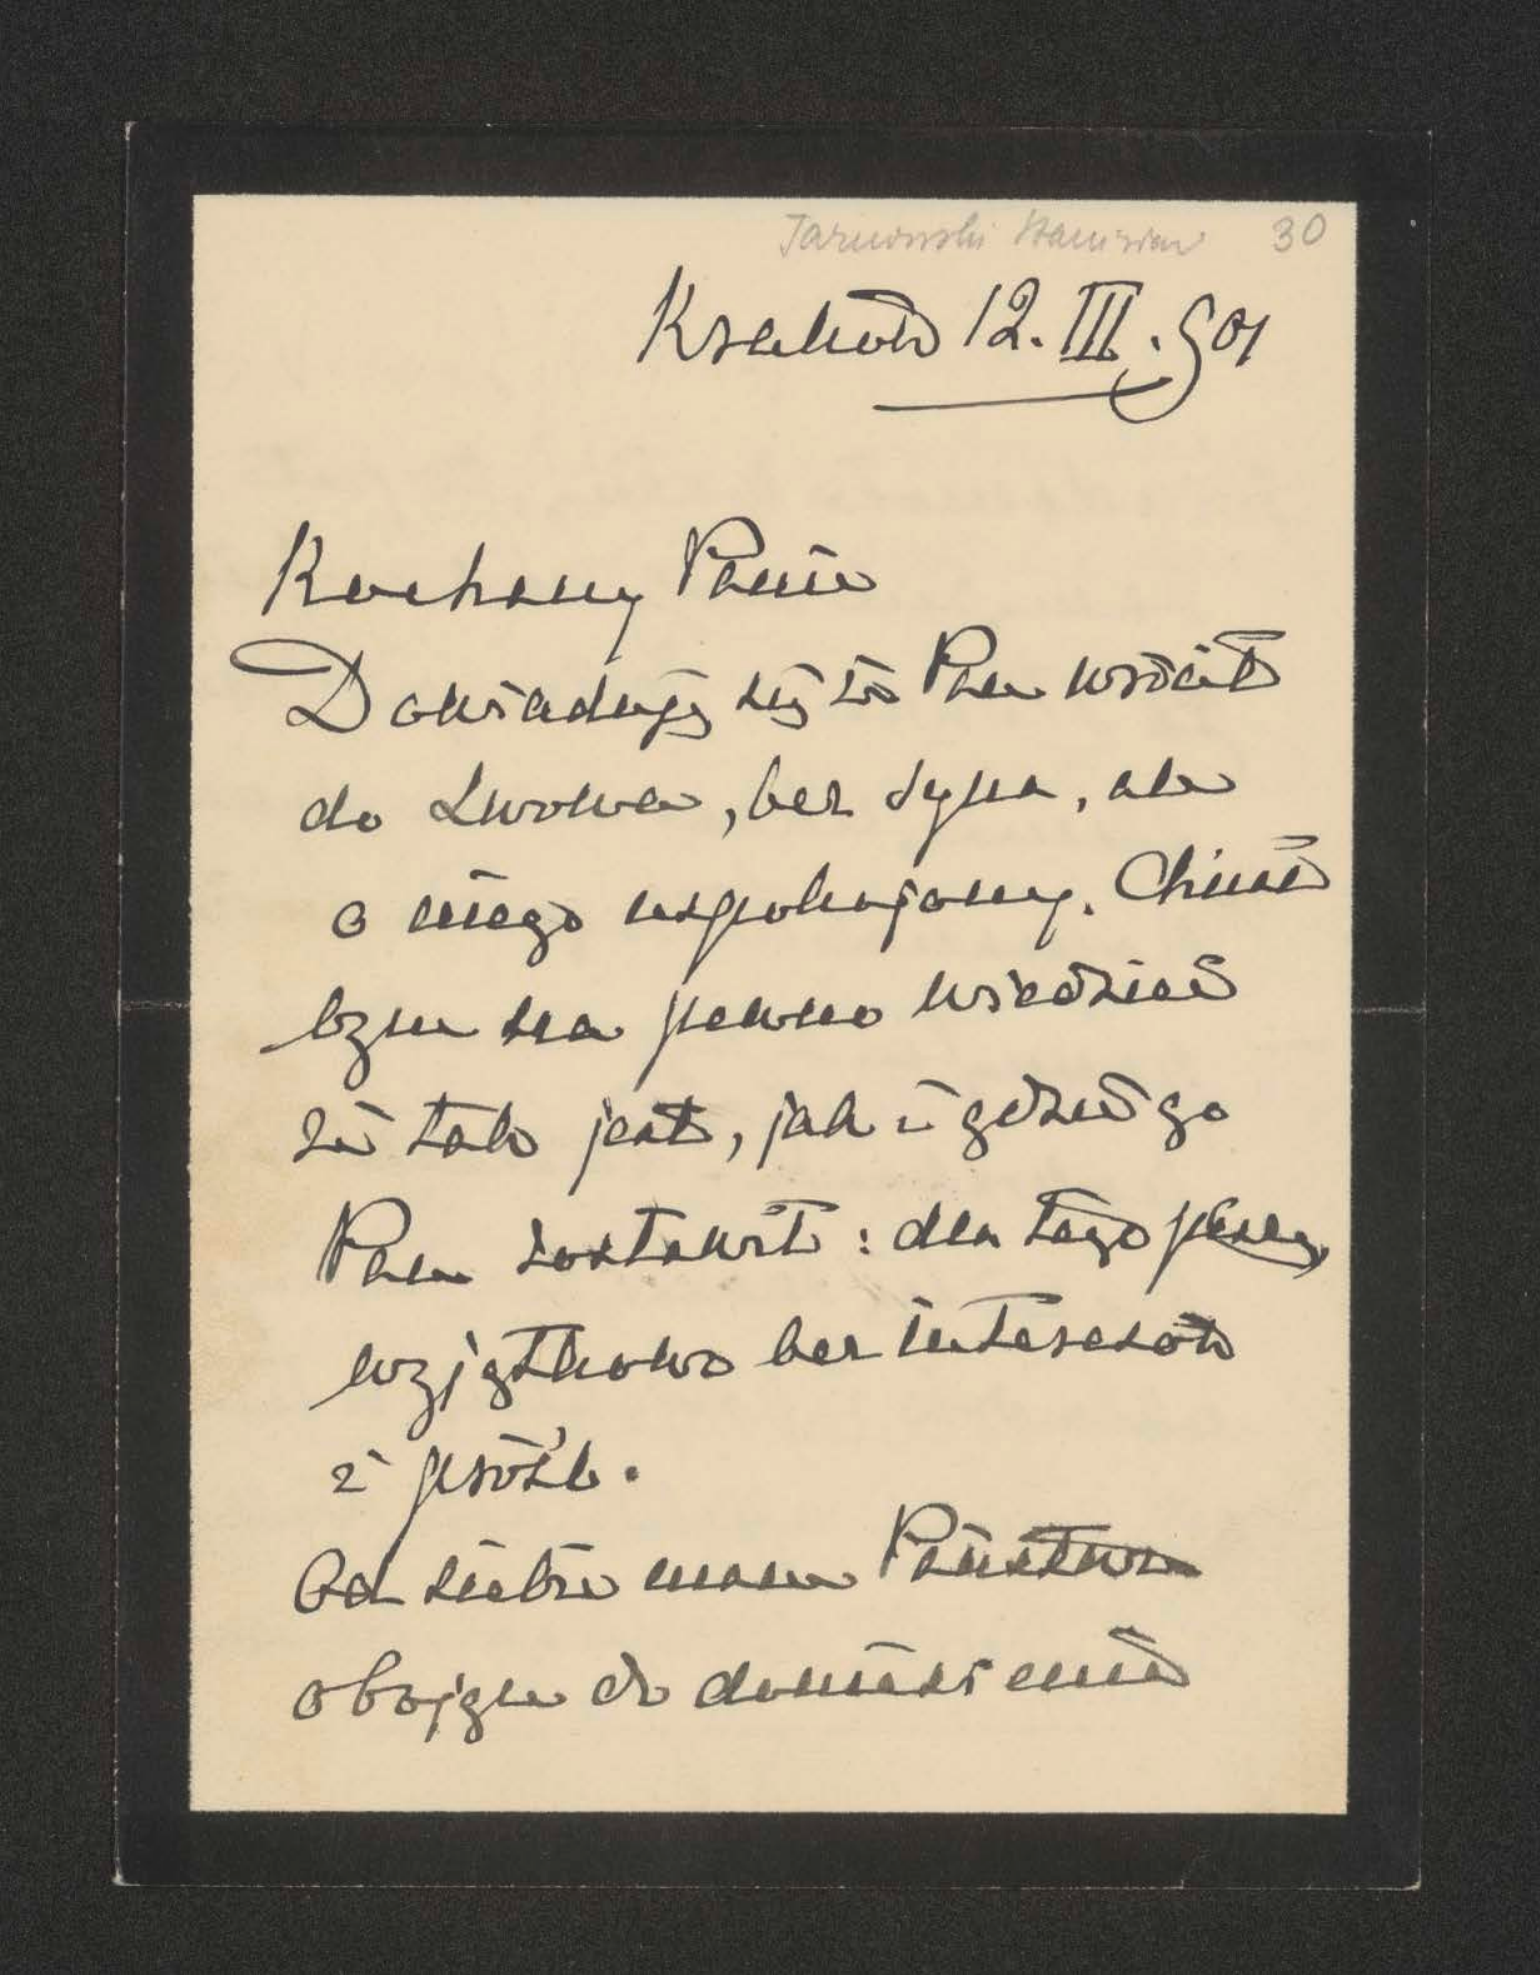 Tarnowski Stanisław 30
Kraków 12. III. 901
Kochany Panie
Dowiaduję się że Pan wrócił
do Lwowa, bez syna, ale
o niego uspokojony. Chciał
bym na pewno wiedzieć
że tak jest, jak i gdzieś go
Pan zostawił: dla tego piszę,
wyjątkowo bez interesów
i próśb.
Od siebie mam Państwu
obojgu do doniesienia